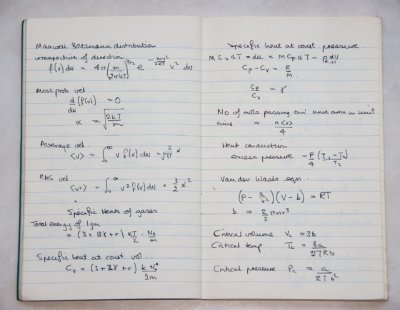 Maxwell Boltzmann distribution
irrespective of direction
f(v)dv = 4π (m/2πkT)^3/2 e^-mv²/2kT v² dv
Most prob vel
d/dv (f(v)) = 0
α = √(2kT/m)
Average vel
<v> = ∫₀^∞ v f(v)dv = 2/√π α
RMS vel
<v²> = ∫₀^∞ v² f(v)dv = 3/2 α²
Specific Heats of gases
Total energy of 1gm
= (3+2γ+r) kT/2 · N₀/m
Specific heat at const vol
Cv = (3+2γ+r) k N₀/2m
Specific heat at const pressure
Cp - Cv = R/M
Cp/Cv = γ
No of mols passing unit area in unit
time = n<v>/4
Heat conduction
excess pressure =
Van der Waals eqn
(P - a/v²)(V - b) = RT
b = 2/3 π n σ³
Critical volume Vc = 3b
Critical temp Tc = 8a/27Rb
Critical pressure Pc = a/27b²